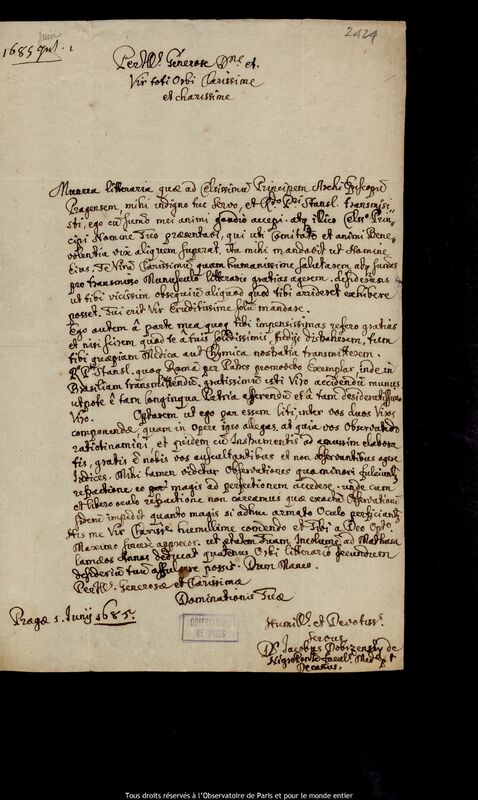 Juin
1685 Jul. 1
2424
Per Ill. Generose Dne et
Vir toti Orbi Clarissime
et charissime
Munera litteraria quæ ad Celsissimum Principem Archi Episcopum
Pragensem, mihi indigno tuo servo, et Rdo Pri Stansel transmisi-
sti, ego cum summo mei animi gaudio accepi. atq illico Celsmo Prin-
cipi Nomine Tuo præsentavi, qui uti Comitate et animi Bene-
volentia vix aliquem superat, ita mihi mandavit ut Nomine
Eius, Te Virum Clarissimum quam humanissime salutarem, atq
pro transmisso Munusculo litterario gratias agerem. desiderans
ut tibi vicissim obsequium aliquod quod tibi arrideret exhibere
posset. Tui erit Vir Eruditissime solum mandare.
Ego autem à parte mea quoq tibi impensissimas refero gratias
et nisi scirem quod te a tuis solidissimis studijs disturbarem, tum
tibi quæpiam Medica aut Chymica nostratia transmitterem.
R. P. Stansl. quoq Roma per Patres promovebo Exemplar, inde in
Brasiliam transmittendum, gratissimum isti Viro accidendum munus,
utpote è tam longinqua Patria afferendum et à tam desideratissimo
Viro. Optarem ut ego par essem liti, inter vos duos Viros
componendæ, quam in Opere ipso allegas, at quia vos Observatores
ratiotinamini, et quidem cum Instrumentis ad amussim elabora-
tis, gratis è nobis vos auscultantibus et non observantibus agere
Judices. Mihi tamen videtur Observationes quo minori
refractione eo magis ad perfectionem accedere. unde cum
et libero oculo refractione non careamus quæ exactam Observationem
impedit quanto magis si adhuc armato Oculo perficiantur
His me Vir Chariss. humillime comendo et Tibi a Deo Opto
Maximo apprecor. ut etatem Tuam Incolumem ad Mathusa
lamæos Annos deducat quatenus Orbi litterario secundum
desiderium tuum possis. Dum Maneo.
Per Ill. Generosæ et Clarissimæ
Dominationis Tuæ
Pragæ 1. Junij 1685.
OBSERVATOIRE
DE PARIS
Humill. et Devotiss.
Servus
Dr. Jacobus Dobrzensky de
Nigroponte Facult. Med. p. t.
Decanus.
Tous droits réservés à l'Observatoire de Paris et pour le monde entier